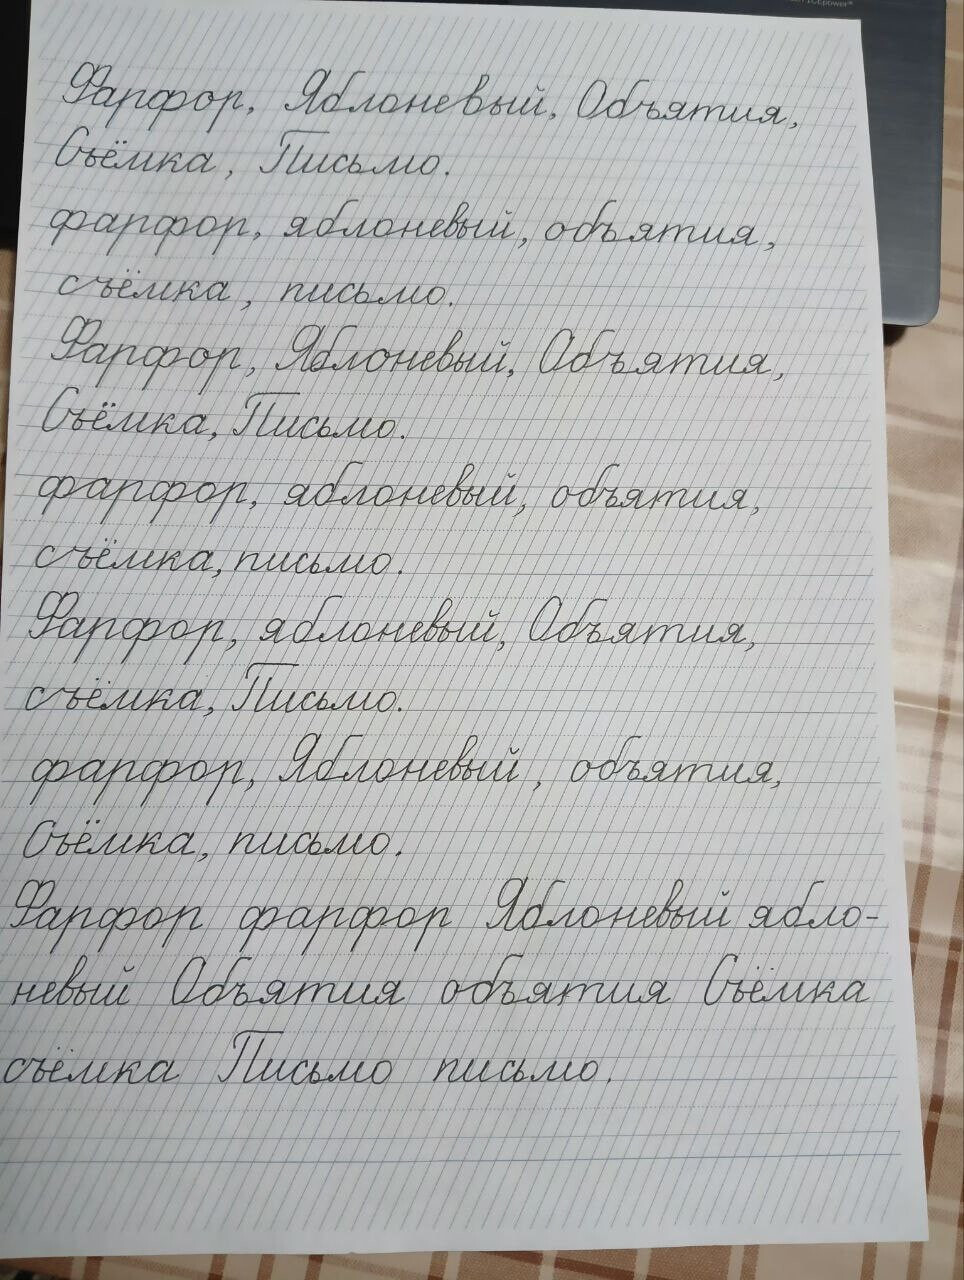 Фарфор, Яблоневый, Объятия,
Съёмка, Письмо.
фарфор, яблоневый, объятия,
съёмка, письмо.
Фарфор, Яблоневый, Объятия,
Съёмка, Письмо.
фарфор, яблоневый, объятия,
съёмка, письмо.
Фарфор, яблоневый, Объятия,
съёмка, Письмо.
фарфор, Яблоневый, объятия,
Съёмка, письмо.
Фарфор фарфор Яблоневый ябло-
невый Объятия объятия Съёмка
съёмка Письмо письмо.